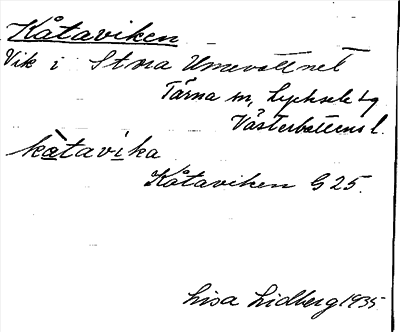 Kåtaviken
Vik i Stora Umevattnet
Tärna sn, Lycksele tg
Västerbottens l.
kåtavika
Kåtaviken G25.
Lisa Lidberg 1935